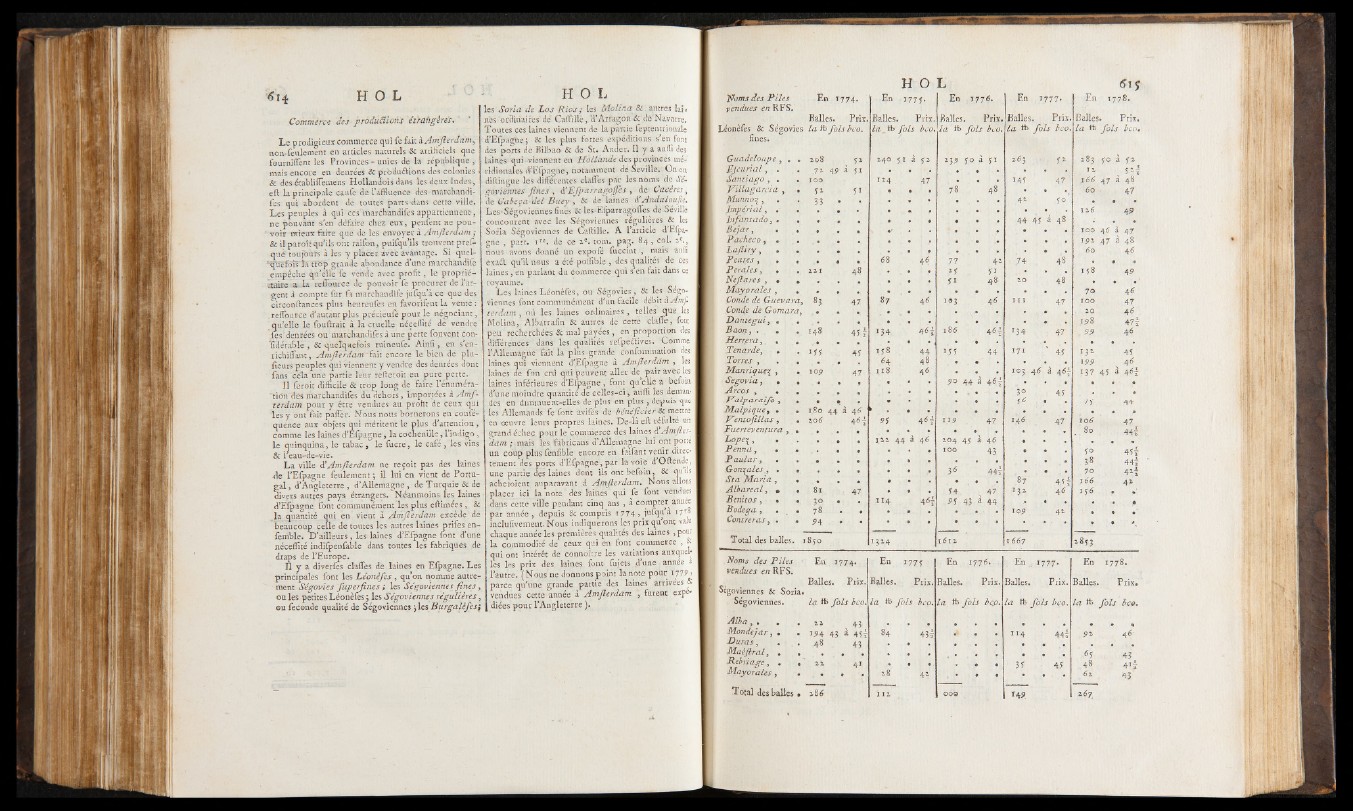 614 H O L
Commerce des productions étrangères.
Le prodigieux commerce qui se fait à Amsterdam,
non-seulement en articles naturels & artificiels que
fournissent les Provinces-unies de la république,
mais encore en denrées & productions des colonies
& des établissemens Hollandois dans les deux Indes,
est la principale cause de l'affluence des marchandi-
ses qui abordent de toutes parts dans cette ville.
Les peuples à qui ces marchandises appartiennent,
ne pouvant s'en défaire chez eux, pensent ne pou-
voir mieux faire que de les envoyer à Amsterdam ;
& il paroît qu'ils ont raison, puisqu'ils trouvent pres-
que toujours à les y placer avec avantage. Si quel-
quefois la trop grande abondance d'une marchandise
empêche qu'elle se vende avec profit, le proprié-
taire a la ressource de pouvoir se procurer de l'ar-
gent à compte sur sa marchandise jusqu'à ce que des
circonstances plus heureuses en favorisent la vente :
ressource d'autant plus précieuse pour le négociant,
qu'elle le soustrait à la cruelle nécessité de vendre
ses denrées ou marchandises à une perte souvent con-
sidérable, & quelquefois ruineuse. Ainsi, en s'en-
richissant, Amsterdam fait encore le bien de plu-
sieurs peuples qui viennent y vendre des denrées dont
sans cela une partie leur resteroit en pure perte.
Il seroit difficile & trop long de faire l'énuméra-
tion des marchandises du dehors, importées à Ams-
terdam pour y être vendues au profit de ceux qui
les y ont fait passer. Nous nous bornerons en consé-
quence aux objets qui méritent le plus d'attention,
comme les laines d'Espagne, la cochenille, l'indigo,
le quinquina, le tabac, le sucre, le café, les vins
& l'eau-de-vie.
La ville d'Amsterdam ne reçoit pas des laines
de l'Espagne seulement ; il lui en vient de Portu-
gal, d'Angleterre, d'Allemagne, de Turquie & de
divers autres pays étrangers. Néanmoins les laines
d'Espagne sont communément les plus estimées, &
la quantité qui en vient à Amsterdam excède de
beaucoup celle de toutes les autres laines prises en-
semble. D'ailleurs, les laines d'Espagne sont d'une
nécessité indispensable dans toutes les fabriques de
draps de l'Europe.
Il y a diverses classes de laines en Espagne. Les
principales sont les Léonèses, qu'on nomme autre-
ment Ségovies superfines ; les Ségoviennes fines,
ou les petites Léonèses ; les Ségoviennes régulières,
ou seconde qualité de Ségoviennes ; les Burgalèses ;
H O L
les Soria de Los Rios ; les Molina & autres lai-
nes ordinaires de Castille, d'Arragon & de Navarre.
Toutes ces laines viennent de la partie septentrionale
d'Espagne ; & les plus fortes expéditions s'en font
des ports de Bilbao & de St. Ander. Il y a aussi des
laines qui viennent en Hollande des provinces mé-
ridionales d'Espagne, notamment de Seville. On en
distingue les différentes classes par les noms de Sé-
goviennes fines, d'Esparragosses, de Cacérès,
de Cabeça del Buey, & de laines d'Andalousie.
Les Ségoviennes fines & les Esparragosses de Séville
concourent avec les Ségoviennes régulières & les
Soria Ségoviennes de Castille. A l'article d'Espa-
gne, part. 1re. de ce 2e. tom. pag. 84, col. 2e.,
nous avons donné un exposé succint, mais aussi
exact qu'il nous a été possible, des qualités de ces
laines, en parlant du commerce qui s'en fait dans ce
royaume.
Les laines Léonèses, ou Ségovies, & les Ségo-
viennes sont communément d'un facile débit à Ams-
terdam, où les laines ordinaires, telles que les
Molina, Albarrasin & autres de cette classe, sont
peu recherchées & mal payées, en proportion des
différences dans les qualités respectives. Comme
l'Allemagne fait la plus grande consommation des
laines qui viennent d'Espagne à Amsterdam, les
laines de son crû qui peuvent aller de pair avec les
laines inférieures d'Espagne, font qu'elle a besoin
d'une moindre quantité de celles-ci, aussi les deman-
des en diminuent-elles de plus en plus, depuis que
les Allemands se sont avisés de bénéficier & mettre
en œuvre leurs propres laines. De-là est résulté un
grand échec pour le commerce des laines d'Amster-
dam ; mais les fabricans d'Allemagne lui ont porté
un coup plus sensible encore en faisant venir direc-
tement des ports d'Espagne, par la voie d'Ostende,
une partie des laines dont ils ont besoin, & qu'ils
achetoient auparavant à Amsterdam. Nous allons
placer ici la note des laines qui se sont vendues
dans cette ville pendant cinq ans, à compter année
par année, depuis & compris 1774, jusqu'à 1778
inclusivement. Nous indiquerons les prix qu'ont valu
chaque année les premières qualités des laines, pour
la commodité de ceux qui en font commerce, &
qui ont intérêt de connoître les variations auxquel-
les les prix des laines sont sujets d'une année à
l'autre. (Nous ne donnons point la note pour 1779,
parce qu'une grande partie des laines arrivées &
vendues cette année à Amsterdam, furent expé-
diées pour l'Angleterre ).
H O L 615
Noms des Piles vendues en RFS. En 1774. En 1775. En 1776. En 1777. En 1778.
Balles. Prix. Balles. Prix. Balles. Prix. Balles. Prix. Balles. Prix.
Léonèses & Ségovies fines. la ℔ sols bco. la ℔ sols bco. la ℔ sols bco. la ℔ sols bco. la ℔ sols bco.
Guadeloupe, . . 208 52 240 51 à 52 239 50 à 51 263 52 283 50 à 52
Escurial, . . 72 49 à 51 . . . . . . 12 52½
Santiago, . . 100 . 124 47 . . 145 47 166 47 à 48
Villagarcia, . 52 51 . . 78 48 . . 60 47
Munnoz, . . 33 . . . . . 42 50 . .
Impérial, . . . . . . . . . . 126 49
Infantado, . . . . . . . . 44 45 à 48 . .
Bejar, . . . . . . . . . . 100 46 à 47
Pacheco, . . . . . . . . . . 192 47 à 48
Lastiry, . . . . . . . . . . 60 46
Peases, . . . . 68 46 77 42 74 48 . .
Perales, . . 221 48 . . 25 51 . . 158 49
Nestares, . . . . . . 51 48 20 48 . .
Mayorales, . . . . . . . . . 70 46
Conde de Guevara, 83 47 87 46 103 46 111 47 100 47
Conde de Gomara, . . . . . . . . 20 46
Dantegui, . . . . . . . . . . 598 47½
Baon, . . 148 45½ 134 46½ 186 46½ 134 47 99 46
Herrera, . . . . . . . . . . . .
Tenarde, . 155 45 158 44 155 44 171 45 132 45
Torres, . . . . 64 48 . . . . 199 46
Manriquez, . 109 47 118 46 . . 103 46 à 46½ 137 45 à 46½
Segovia, . . . . . . 90 44 à 46½ . . . .
Arcos, . . . . . . . . 30 45 . .
Valparaiso, . . . . . . . 56 . 75 44
Malpique, . . 180 44 à 46 . . . . . . . .
Vensosillas, . 206 46½ 95 46½ 119 47 146 47 106 47
Fuerteventura, . . . . . . . . . 80 44½
Lopez, . . . . 122 44 à 46 204 45 à 46 . . . .
Penna, . . . . . . 100 43 . . 50 45½
Paular, . . . . . . . . . . 38 44½
Gonzales, . . . . . . 36 44½ . . 70 42½
Sta Maria, . . . . . . . 87 45½ 166 42
Albareal, . . 81 47 . . 54 47 132 46 256 .
Benitos, . . 30 . 114 46½ 95 43 à 44 . . . .
Bodega, . . 78 . . . . . 109 42 . .
Contreras, . . 94 . . . . . . . . .
Total des balles. 1850 1324 1612 1667 2853
Noms des Piles vendues en RFS. En 1774. En 1775 En 1776. En 1777. En 1778.
Balles. Prix. Balles. Prix. Balles. Prix. Balles. Prix. Balles. Prix.
Ségoviennes & Soria. Ségoviennes. la ℔ sols bco. la ℔ sols bco. la ℔ sols bco. la ℔ sols bco. la ℔ sols bco.
Alba, . . 22 43 . . . . . . . .
Mondejar, . . 194 43 à 45½ 84 43½ . . 114 44½ 92 46
Duras, . . 48 43 . . . . . . . .
Maëstral, . . . . . . . . . . 65 43
Rebisage, . . 22 41 . . . . 35 45 48 41½
Mayorales, . . . . 28 42 . . . . 62 43
Total des balles . 286 112 000 149 267